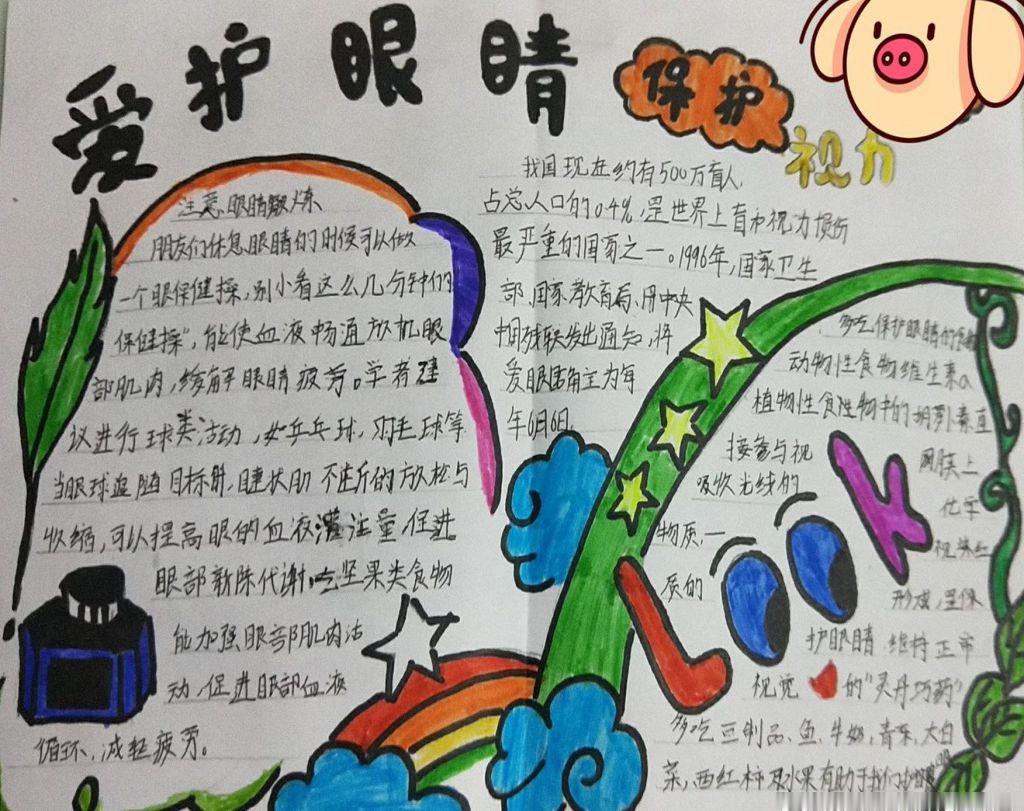 爱护眼睛
保护
视力
注意眼睛锻炼
朋友们休息眼睛的时侯可以做
一个眼保健操,别小看这么几分钟的
保健操",能使血液畅通放机眼
部肌肉,缓解眼睛疲劳。学者建
议进行球类活动,如乒乓球,羽毛球等
当眼球追随目标时,睫状肌不断的放松与
收缩,可以提高眼的血液灌注量,促进
眼部新陈代谢,吃坚果类食物
能加强眼部肌肉活
动,促进眼部血液
循环、减轻疲劳。
我国现在约有500万盲人,
占总人口的0.4%,是世界上盲和视力损伤
最严重的国家之一。1996年,国家卫生
部、国家教育局、用中央
中国残联发出通知,将
爱眼日确立为每
年6月6日。
多吃保护眼睛的食物
动物性食物维生素a
植物性食性物中的胡萝卜素直
接参与视网膜上
吸收光线的化学
物质一视紫红
质的形成,是保
护眼睛、维持正常
视觉的"灵丹巧药"
多吃豆制品、鱼、牛奶,青菜,大白
菜,西红柿及水果有助于我们